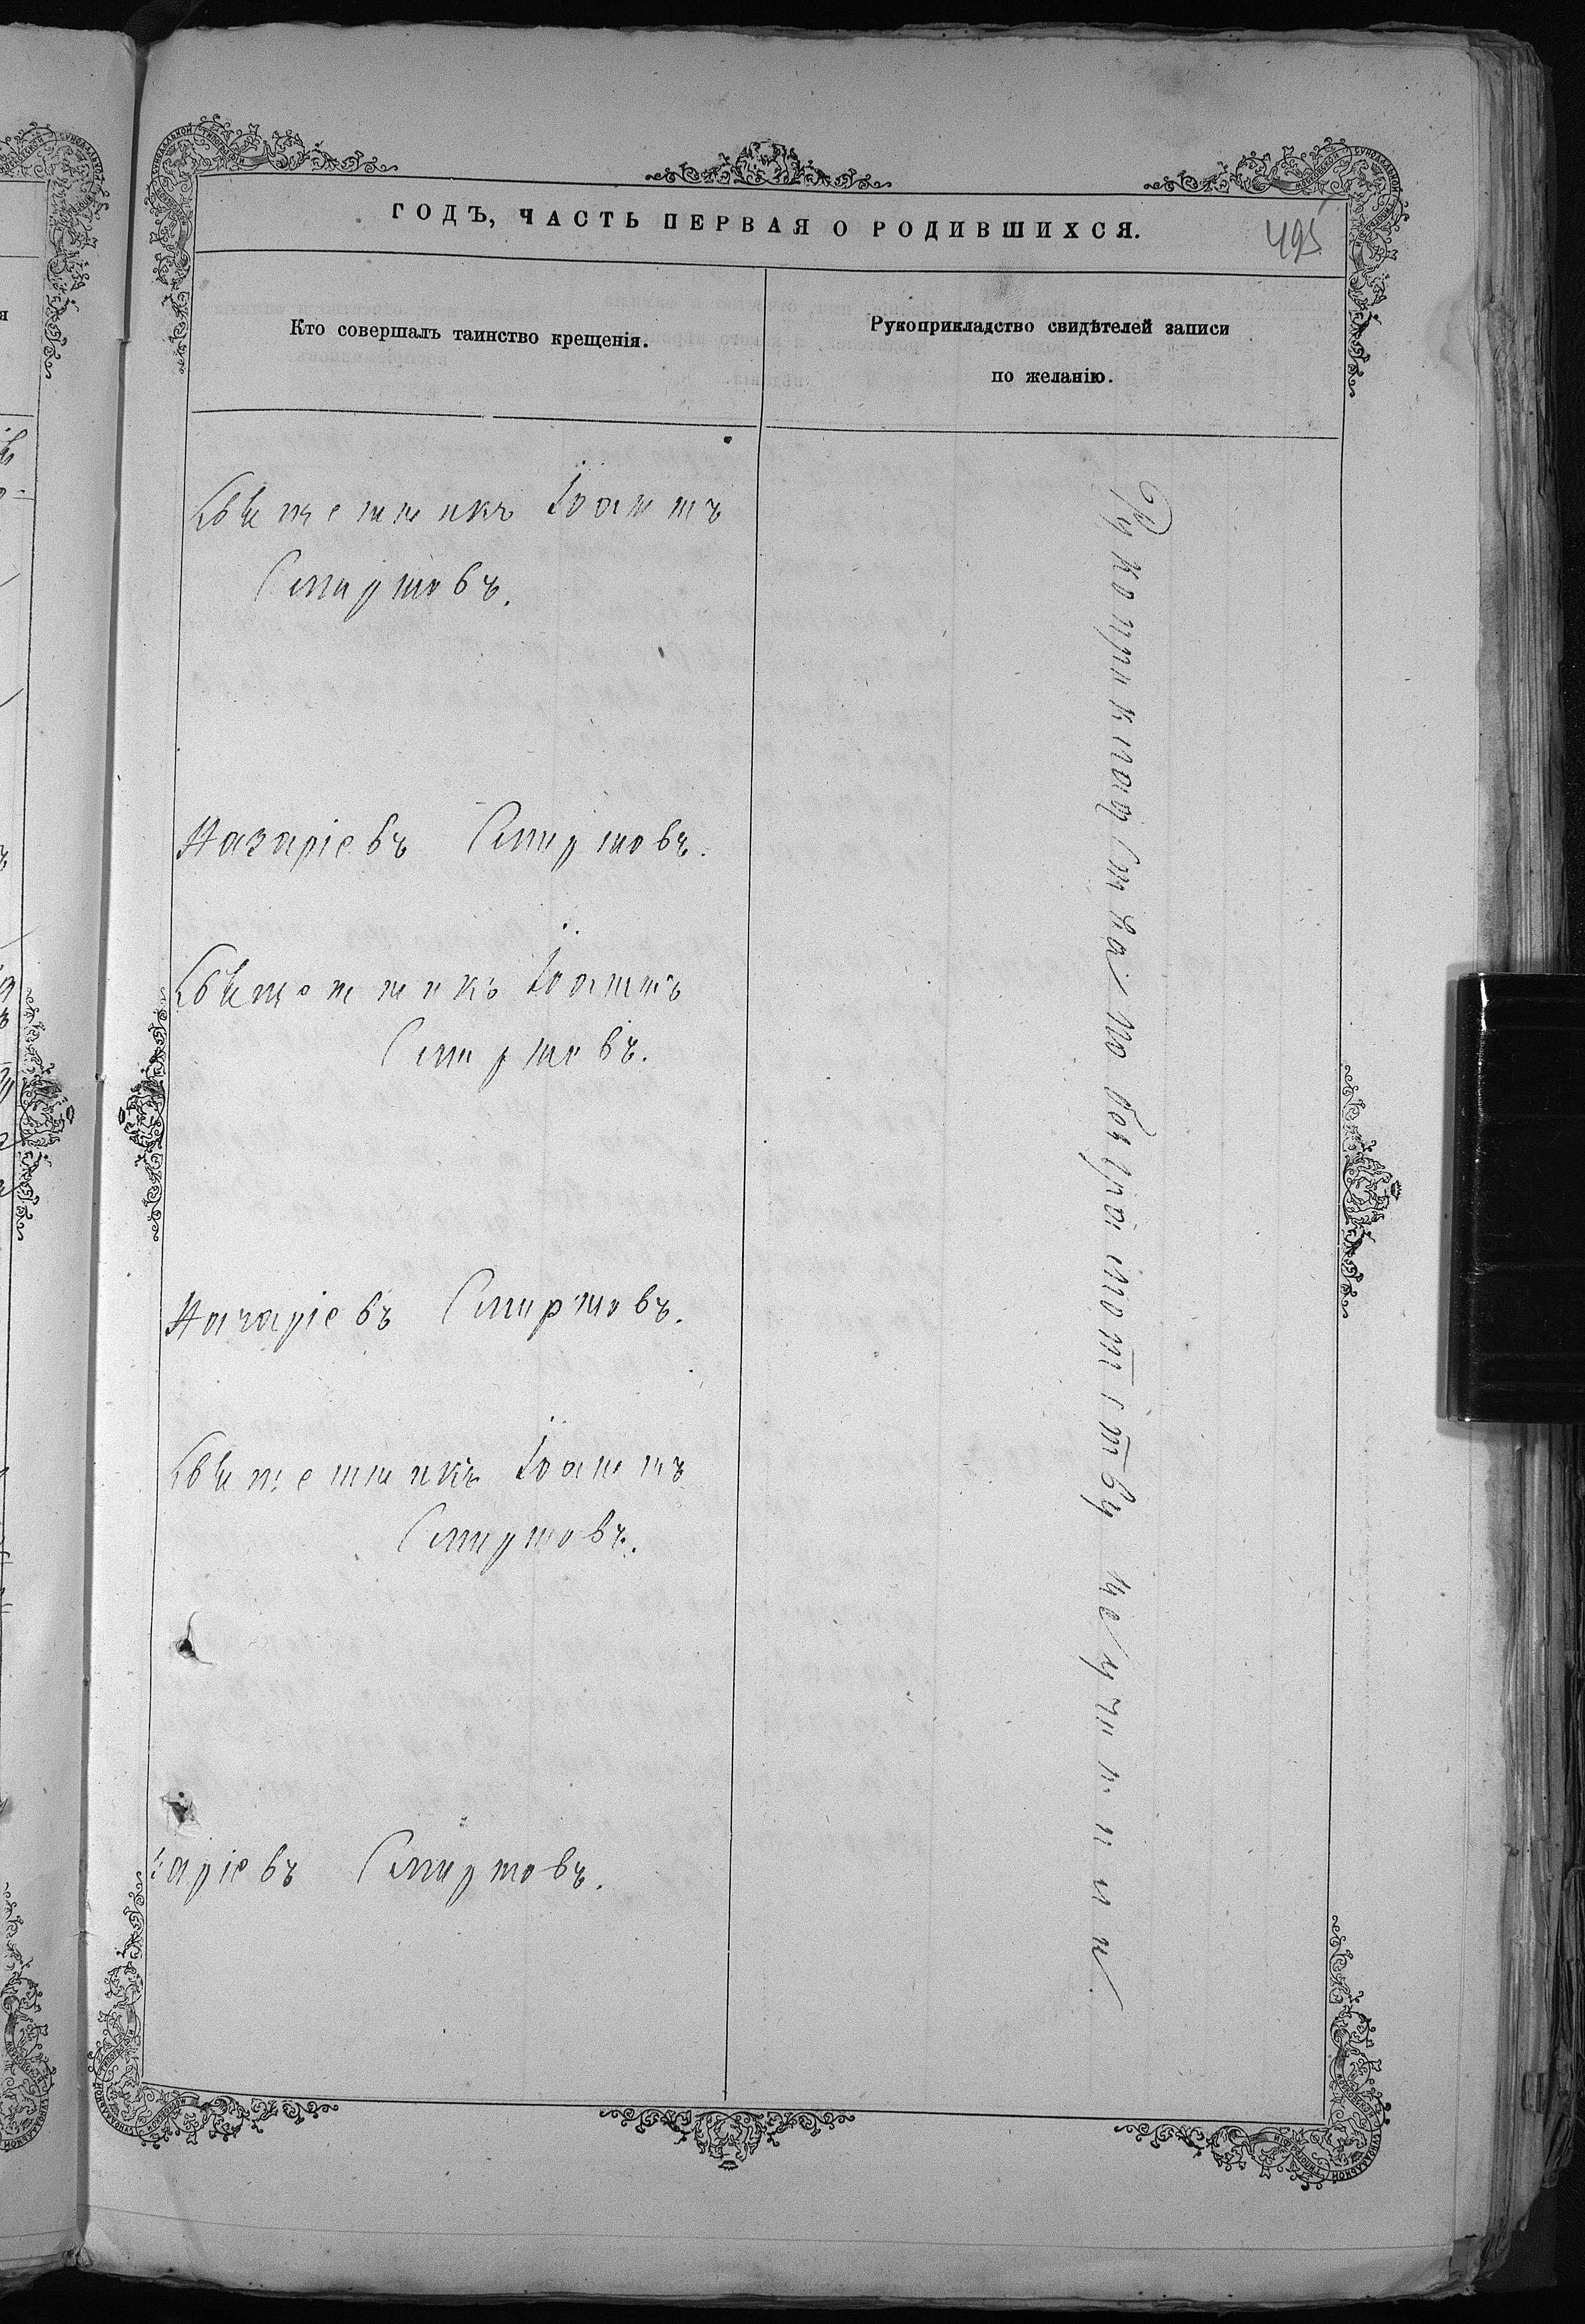 ГОДЪ, ЧАСТЬ ПЕРВАЯ О РОДИВШИХСЯ.
495
Кто совершалъ таинство крещенія.
Рукоприкладство свидѣтелей записи
по желанію.
Священникъ Іоаннъ
Смирновъ.
Назаріевъ Смирновъ.
Священникъ Іоаннъ
Смирновъ.
Назаріевъ Смирновъ.
Священникъ Іоаннъ
Смирновъ.
заріевъ Смирновъ.
Рукоприкладства по безграмотству не учинили.